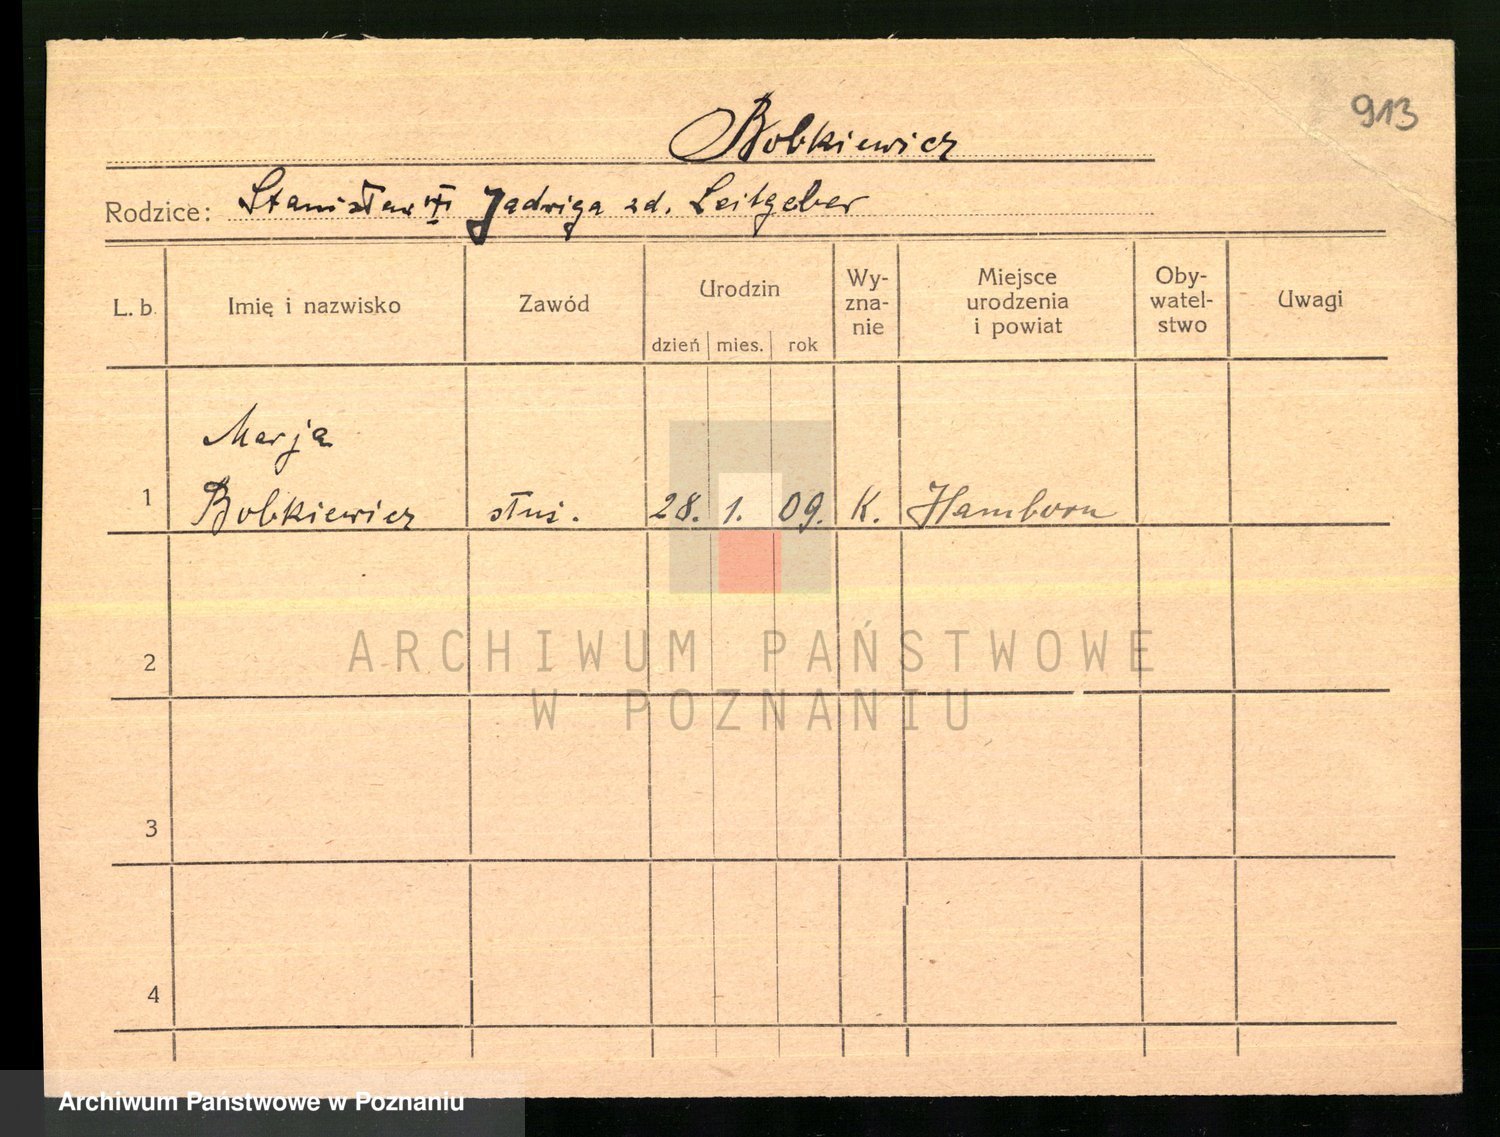 913
Bobkiewicz
Rodzice: Stanisław i Jadwiga zd. Leitgeber
L. b. Imię i nazwisko Zawód Urodzin Wy-zna-nie Miejsce urodzenia i powiat Oby-watel-stwo Uwagi
dzień mies. rok
Marja
1 Bobkiewicz służ. 28. 1. 09. K. Hamborn
2
ARCHIWUM PAŃSTWOWE
W POZNANIU
3
4
Archiwum Państwowe w Poznaniu